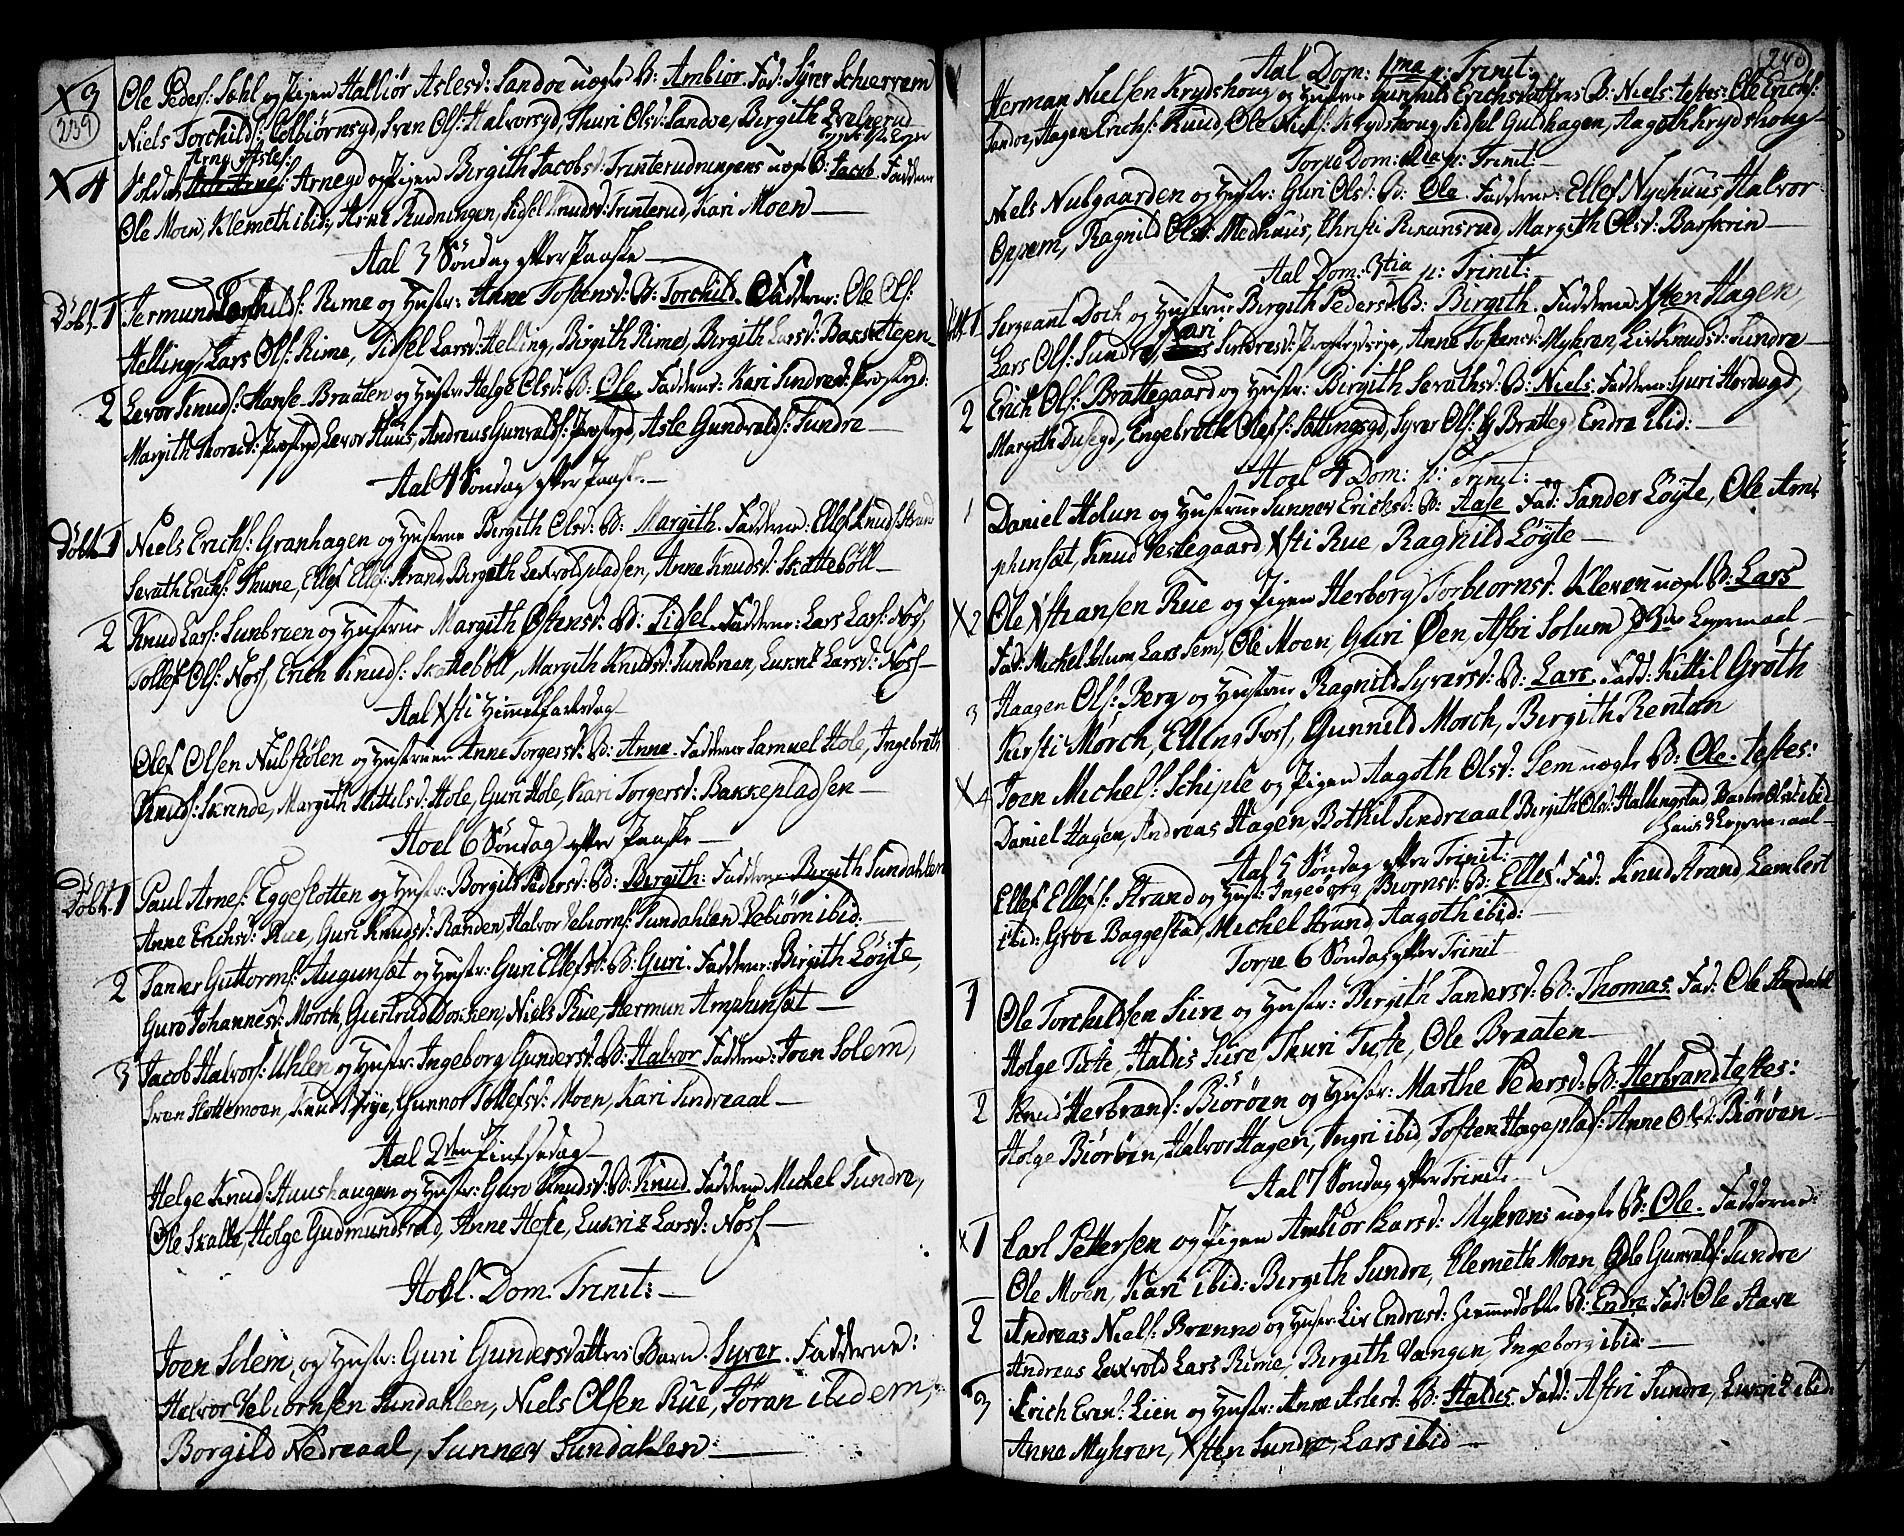 X 3 Ole Peders: Sæhl og Pigen Halliör Aslesd: Sandoe uægte B: Ambiør. Fad: Syver Schierrem
239 Niels Torchilds: Colbiörnsgd, Sven Ols: Halvorsgd, Thuri Olsd: Sandoe, Birgith
Arne Asles:
X 4 Soldat Arnegd og Pigen Birgith Jacobsd: Trinterudningens uægte B: Jacob. Fadderne
Ole Moen, Klemeth ibid:, Arne Rudningen, Sidsel Knudsd: Trinterud, Kari Moen —
Aal 3 Söndag efter Paaske —
Döbt. 1 Germund Torchilds: Rime og Hustr: Anne Tostensd: B: Torchild. Fadderne: Ole Ols:
Helling, Lars Ols: Rime, Sidsel Larsd: Helling, Birgith Rime, Birgith Larsd: Bassetegen
2 Levor Knuds: Hansebraaten og Hustr: Helge Olsd: B: Ole. Fadderne: Kari Sindresd: Prostgd:
Margith Thoresd: Prostgd, Levor Huus, Andreas Gunvalds: Prostgd, Asle Gundvalds: Sundre —
Aal 4 Söndag efter Paaske —
Döbt. 1 Niels Erichs: Granhagen og Hustrue Birgith Olsd: B: Margith. Fadderne: Ellef Knuds: Strand
Sevath Erichs: Thune, Ellef Ellefs: Strand, Birgith Lexvoldpladsen, Anne Knudsd: Skattebøll —
2 Knud Lars: Sunbreen og Hustrue Margith Østensd: B: Sidsel. Fadderne: Lars Lars: Noss,
Tollef Ols: Noss, Erich Knuds: Skattebøll, Margith Knudsd: Sundbreen, Lukriz Larsd: Noss —
Aal Xsti Himmelfartsdag
Olef Olsen Nulstølen og Hustrue Anne Torgersd: B: Anne. Fadderne Samuel Hole, Ingebreth
Knuds: Skrinde, Margith Kittilsd: Hole, Guri Hole, Kari Torgersd: Bakkepladsen —
Hoel 6 Söndag efter Paaske —
Döbt. 1 Paul Arnes: Eggeslotten og Hustr: Borgild Pedersd: B: Bergith: Fadderne Birgith Sundahlen
Anne Erichsd: Rue, Guri Knudsd: Randen, Halvor Vebiorns: Sundahlen Vebiörn ibid: —
2 Sander Guttorms: Augunsæt og Hustr: Guri Ellefsd: B: Guri. Fadderne: Birgith Löyte,
Guro Johannesd: Mörch, Giertrud Dokken, Niels Rue, Hermun Amphinsæt —
3 Jacob Halvors: Uhlen og Hustr: Ingeborg Gundersd: B: Halvor Fadderne: Joen Solem,
Sven Slottemoen, Knud Frye, Gunnor Tollefsd: Moen, Kari Sindreaal —
Aal 2den Pintsedag —
Helge Knuds: Huushaugen og Hustr: Guro Knudsd: B: Knud. Fadderne Michel Sundre,
Ole Skalle, Holge Gudmundsrud, Anne Hefte, Lukriz Larsd: Noss —
Hoel. Dom. Trinit: —
Joen Solem, og Hustr: Guri Gundersdatters Barn. Syver. Fadderne:
Halvor Vebiornsen Sundahlen, Niels Olsen Rue, Jöran ibidem,
Borgild Nedreaal, Sunnev Sundahlen —
240
Aal Dom: 1ma p: Trinit:
Herman Nielsen Krydshoug og Hustrue Gunhild Erichsdatters B: Niels. testes: Ole Erichs:
Sandoe, Hagen Erichs: Ruud, Ole Niels: Krydshoug, Sidsel Guldhagen, Aagoth Krydshoug —
Torpe Dom: 2da p: Trinit: —
Niels Nubgaarden og Hustr: Guri Olsd: B: Ole. Fadderne: Ellef Nyehuus, Halvor
Opperm, Ragnild Olsd: Medhuus, Christi Rixansrud, Margith Olsd: Barskrin —
Aal Dom: 3tia p: Trinit:
1 Sergeant Doch og Hustrue Birgith Pedersd: B: Birgith. Fadderne: Xsten Hagen,
Lars Ols: Sundre, Kari Syndresd: Prostgd, Anne Tostensd: Myhren, Liv Knudsd: Sundre —
2 Erich Ols: Brattegaard og Hustr: Birgith Sevathsd: B: Niels. Fadderne: Guri Hordegd,
Margith Dusegd, Engebreth Olefs: Sottingsgd, Syver Ols: Bratteg Endre ibid: —
Hoel 4 Dom: p: Trinit: —
1 Daniel Holun og Hustrue Sunnev Erichsd: B: Aase Fad: Sander Löyte, Ole Am-
phinsæt, Knud Vestegaard Xsti Rue, Ragnild Löyte —
X 2 Ole Xstiansen Rue og Pigen Herborg Torbiornsd: Kleven uægte B: Lars
Fad: Michel Solum Lars Sem, Ole Moen, Guri Øen, Astri Solum Legermaal —
3 Haagen Ols: Berg og Hustrue Ragnild Syversd: B: Lars. Fadd: Kittil Gröth
Kirsti Mörch, Elling Foss, Gunnild Morch, Birgith Rentan
X 4 Joen Michels: Schiple og Pigen Aagoth Olsd: Sem uægte B: Ole. testes:
Daniel Hagen, Andreas Hagen, Bothil Sindreaal Birgith Olsd: Hallingstad Olsd: ibid
hans Legermaal —
Aal 5 Söndag efter Trinit:
Ellef Ellefs: Strand og Hust: Ingeborg Biornsd: B: Ellef. Fad: Knud Strand, Lambert
ibid: Groe Baggestad, Michel Strand, Aagoth ibid: —
Torpe 6 Söndag efter Trinit —
1 Ole Torchildsen Siire og Hustr: Birgith Sandersd: B: Thomas. Fad: Ole
Holge Tufte, Haldis Siire, Thuri Tufte, Ole Braaten —
2 Knud Herbrans: Biöröen og Hustr: Marthe Pedersd: B: Herbrand testes:
Holge Biöröen, Halvor Hagen, Ingri ibid, Tosten Hageplads: Anne Olsd: Biöröen —
Aal 7 Söndag efter Trinit: —
x 1 Carl Pettersen og Pigen Ambiör Larsd: Myhrens uægte B: Ole. Fadderne:
Ole Moen, Kari ibid: Bergith Sundre, Clemeth Moen, Ole Gunvalds: Sundre
2 Andreas Niels: Brenno og Hustr: Liv Endresd: hiemmedöbte B: Endre Fad: Ole Aave
Andreas Lexvold Lars Rime, Birgith Vangen, Ingeborg ibid: —
3 Erich Evens: Lien og Hustr: Anne Aslesd: B: Haldis. Fadd: Astri Sundre, Lukriz ibid:
Anne Myhren, Xsten Sundre, Lars ibid —